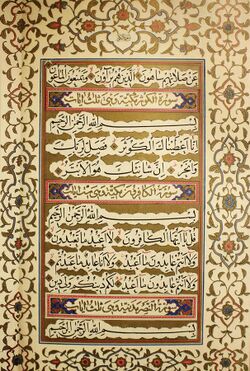 عَنْ صَلَاتِهِمْ سَاهُونَ الَّذِينَ هُمْ يُرَاؤُنَ وَيَمْنَعُونَ الْمَاعُونَ
سورة الكوثر مكية وهي ثلث ايات
بِسْمِ اللَّهِ الرَّحْمَنِ الرَّحِيمِ
إِنَّا أَعْطَيْنَاكَ الْكَوْثَرَ فَصَلِّ لِرَبِّكَ
وَانْحَرْ إِنَّ شَانِئَكَ هُوَ الْأَبْتَرُ
سورة الكافرون مكية وهي ايات
بِسْمِ اللَّهِ الرَّحْمَنِ الرَّحِيمِ
قُلْ يَا أَيُّهَا الْكَافِرُونَ لَا أَعْبُدُ مَا تَعْبُدُونَ
وَلَا أَنْتُمْ عَابِدُونَ مَا أَعْبُدُ وَلَا أَنَا عَابِدٌ مَا عَبَدْتُمْ
وَلَا أَنْتُمْ عَابِدُونَ مَا أَعْبُدُ لَكُمْ دِينُكُمْ وَلِيَ دِينِ
سورة النصر مدنية وهي ثلث ايات
بِسْمِ اللَّهِ الرَّحْمَنِ الرَّحِيمِ